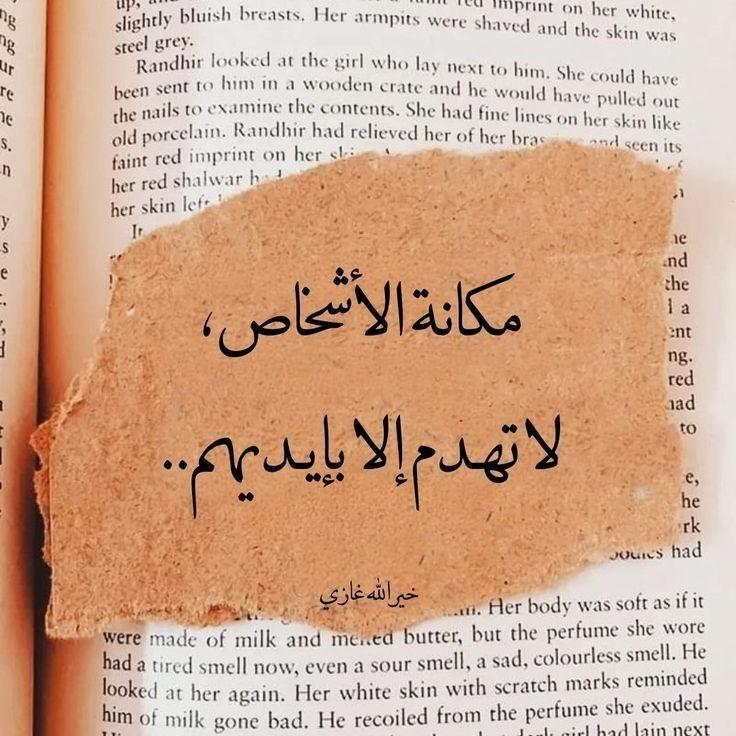 imprint on her white,
slightly bluish breasts. Her armpits were shaved and the skin was
steel grey.
Randhir looked at the girl who lay next to him. She could have
been sent to him in a wooden crate and he would have pulled out
the nails to examine the contents. She had fine lines on her skin like
old porcelain. Randhir had relieved her of her and seen its
faint red imprint on her
her red shalwar
her skin left
It
مكانة الأشخاص،
لا تهدم إلا بإيديهم..
خيرالله غازي
the
a
red
to
he
had
Her body was soft as if it
were made of milk and melted butter, but the perfume she wore
had a tired smell now, even a sour smell, a sad, colourless smell. He
looked at her again. Her white skin with scratch marks reminded
him of milk gone bad. He recoiled from the perfume she exuded.
girl had lain next